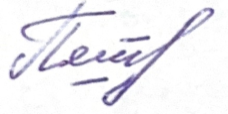 Петр